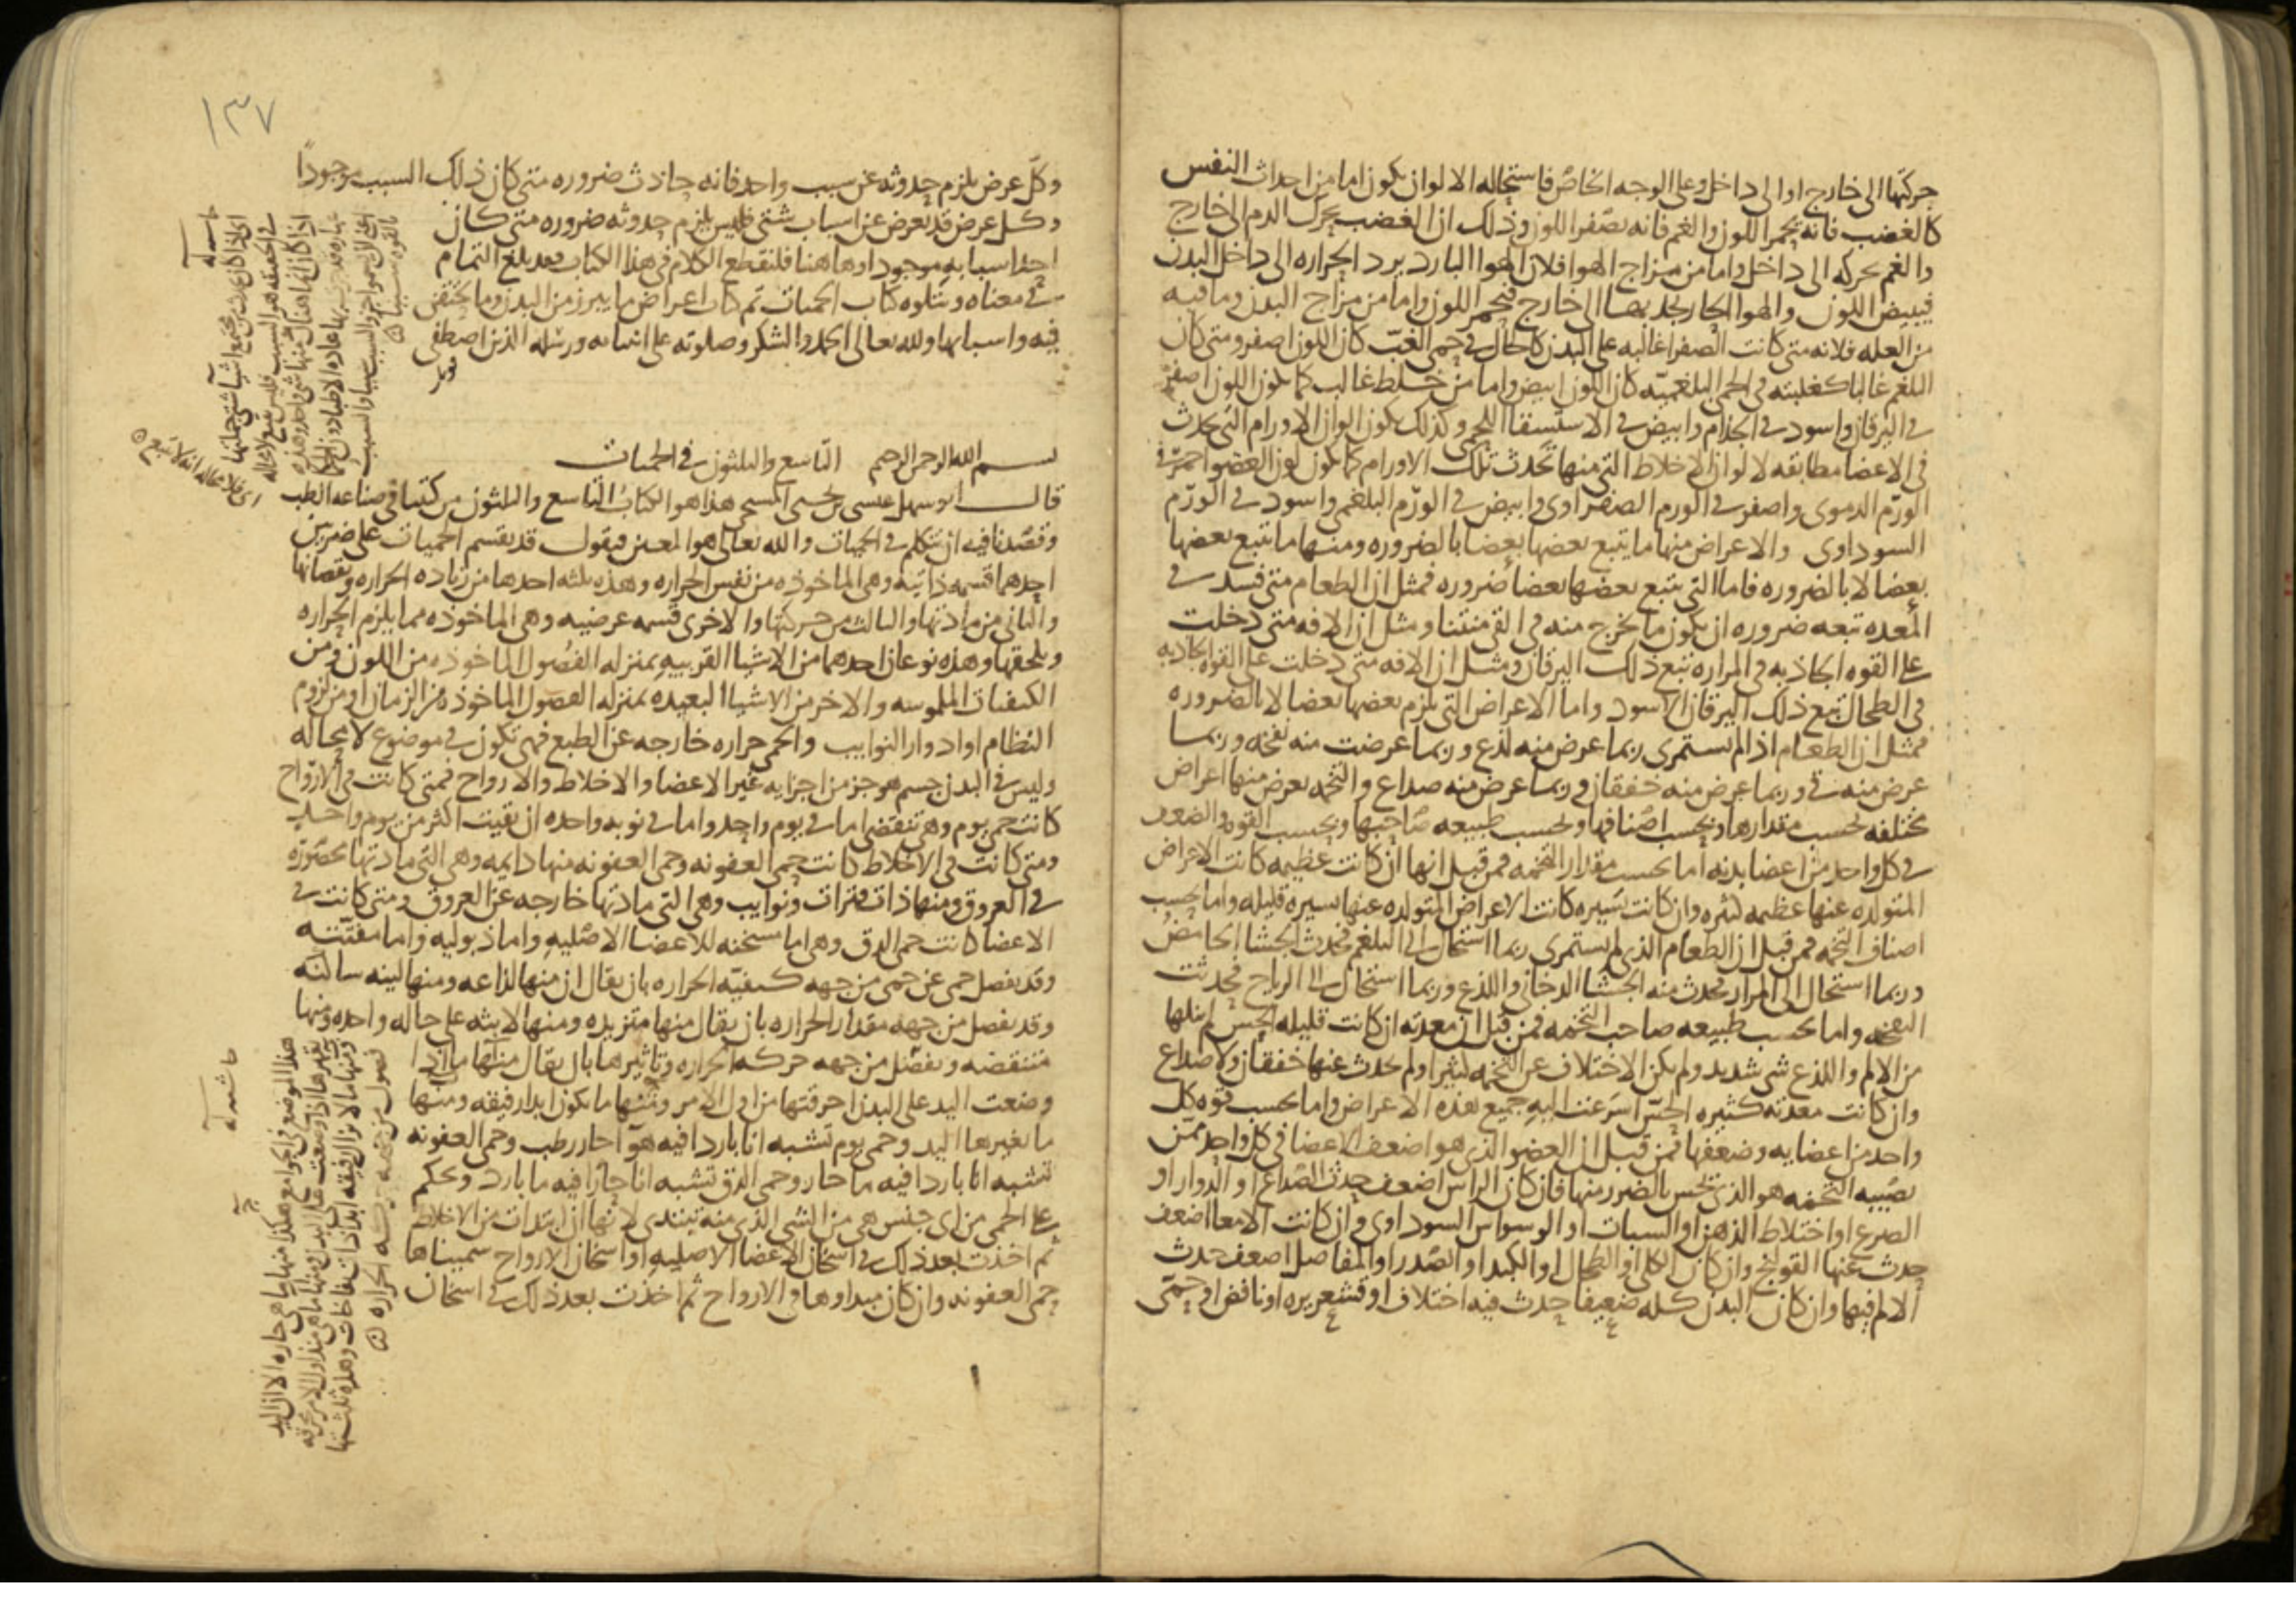 حركتها الى خارج او الى داخل وعلى الوجه الخاص فاستحاله الالوان يكون اما من احداث النفس
كالغضب فانه يحمر اللون والغم فانه يصفر اللون وذلك ان الغضب يحرك الدم الى خارج
والغم يحركه الى داخل واما من مزاج الهوا فلان الهوا البارد يرد الحراره الى داخل البدن
فيبيض اللون والهوا الحار يجذبها الى خارج فيحمر اللون واما من مزاج البدن وما فيه
من العله فلانه متى كانت الصفرا غالبه على البدن كالحال في حمى الغب كان اللون اصفر ومتى كان
البلغم غالبا كغلبته في الحمى البلغميه كان اللون ابيض واما من خلط غالب كما يكون اللون اصفر
في اليرقان واسود في الجذام وابيض في الاستسقا اللحمي وكذلك يكون الوان الاورام التي تحدث
في الاعضا مطابقه لالوان الاخلاط التي منها تحدث تلك الاورام كما يكون لون العضو احمر في
الورم الدموي واصفر في الورم الصفراوي وابيض في الورم البلغمي واسود في الورم
السوداوي والاعراض منها ما يتبع بعضها بعضا بالضروره ومنها ما تتبع بعضها
بعضا لا بالضروره فاما التي يتبع بعضها بعضا ضروره فمثل ان الطعام متى فسد في
المعده تبعه ضروره ان يكون ما يخرج منه في القي منتنا ومثل ان الافه متى دخلت
على القوه الجاذبه في المراره تبع ذلك اليرقان ومثل ان الافه متى دخلت على القوه الجاذبه
في الطحال تبع ذلك اليرقان الاسود واما الاعراض التي يلزم بعضها بعضا لا بالضروره
فمثل ان الطعام اذا لم يستمرى ربما عرض منه لذع وربما عرضت منه نفخه وربما
عرض منه في وربما عرض منه خفقان وربما عرض منه صداع والتخمه يعرض منها اعراض
مختلفه بحسب مقدارها وبحسب اصنافها وبحسب طبيعه صاحبها وبحسب القوه والضعف
في كل واحد من اعضا بدنه اما بحسب مقدار التخمه فمن قبل انها ان كانت عظيمه كانت الاعراض
المتولده عنها عظيمه كثيره وان كانت يسيره كانت الاعراض المتولده عنها يسيره قليله واما بحسب
اصناف التخمه فمن قبل ان الطعام الذي لم يستمرى ربما استحال الى البلغم فحدث الجشا الحامض
وربما استحال الى المرار فحدث منه الجشا الدخاني واللذع وربما استحال الى الرياح فحدثت
النفخه واما بحسب طبيعه صاحب التخمه فمن قبل ان معدته ان كانت قليله الحس لم ينلها
من الالم واللذع شي شديد ولم يكن الاختلاف عن التخمه كثيرا ولم يحدث عنها خفقان ولا صداع
وان كانت معدته كثيره الحس اسرعت اليه جميع هذه الاعراض واما بحسب قوه كل
واحد من اعضايه وضعفها فمن قبل ان العضو الذي هو اضعف الاعضا في كل واحد ممن
تصيبه التخمه هو الذي يحس بالضرر منها فان كان الراس اضعف حدث الصداع او الدوار او
الصرع او اختلاط الذهن او السبات او الوسواس السوداوي وان كانت الامعا اضعف
حدث عنها القولنج وان كان الكلى او الطحال او الكبد او الصدر او المفاصل اضعف حدث
الالم فيها وان كان البدن كله ضعيفا حدث فيه اختلاف او قشعريره او نافض او حمى
١٣٧
وكل عرض يلزم حدوثه عن سبب واحد فانه حادث ضروره متى كان ذلك السبب موجودا
وكل عرض قد يعرض عن اسباب شتى فليس يلزم حدوثه ضروره متى كان
احد اسبابه موجودا وهاهنا فلنقطع الكلام في هذا الكتاب فقد بلغ التمام
في معناه ويتلوه كتاب الحميات ثم كتاب اعراض ما يبرز من البدن وما يحتقن
فيه واسبابها ولله تعالى الحمد والشكر وصلوته على انبيائه ورسله الذين اصطفى
بسم الله الرحمن الرحيم التاسع والثلثون في الحميات
قال ابو سهل عيسى بن يحيى المسيحي هذا هو الكتاب التاسع والثلثون من كتبنا في صناعه الطب
وقصدنا فيه ان نتكلم في الحميات والله تعالى هو المعين فيقول قد يقسم الحميات على ضربين
احدهما قسمه ذاتيه وهي الماخوذه من نفس الحراره وهذه ثلثه احدها من زياده الحراره ونقصانها
والثاني من مادتها والثالث من حركتها والاخرى قسمه عرضيه وهي الماخوذه مما يلزم الحراره
ويلحقها وهذه نوعان احدهما من الاشيا القريبه بمنزله الفصول الماخوذه من اللون ومن
الكيفيات الملموسه والاخر من الاشيا البعيده بمنزله الفصول الماخوذه من الزمان او من لزوم
النظام او ادوار النوايب والحمى حراره خارجه عن الطبع فهي تكون في موضوع لا محاله
وليس في البدن جسم هو جز من اجزايه غير الاعضا والاخلاط والارواح فمتى كانت في الارواح
كانت حمى يوم وهي تنقضي اما في يوم واحد واما في نوبه واحده ان بقيت اكثر من يوم واحد
ومتى كانت في الاخلاط كانت حمى العفونه وحمى العفونه منها دايمه وهي التي مادتها محصوره
في العروق ومنها ذات فترات ونوايب وهي التي مادتها خارجه عن العروق ومتى كانت في
الاعضا كانت حمى الدق وهي اما مسخنه للاعضا الاصليه واما ذبوليه واما مفتته
وقد يفصل حمى عن حمى من جهه كيفيه الحراره بان يقال ان منها لذاعه ومنها لينه ساكنه
وقد يفصل من جهه مقدار الحراره بان يقال منها متزيده ومنها لابثه على حاله واحده ومنها
متنقصه ويفصل من جهه حركه الحراره وتاثيرها بان يقال منها ما اذا
وضعت اليد على البدن احرقتها من اول الامر ومنها ما يكون ابدا رقيقه ومنها
ما تغيرها اليد وحمى يوم تشبه انا باردا فيه هوا حار رطب وحمى العفونه
تشبه انا باردا فيه ما حار وحمى الدق تشبه انا حارا فيه ما بارد ويحكم
على الحمى من اي جنس هي من الشي الذي منه تبتدى لانها ان ابتدات من الاخلاط
ثم اخذت بعد ذلك في اسخان الاعضا الاصليه او اسخان الارواح سميناها
حمى العفونه وان كان مبداوها في الارواح ثم اخذت بعد ذلك في اسخان
حاشيه
حاشيه